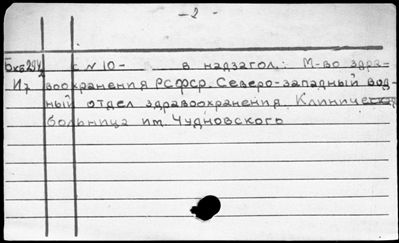 — 2 —
с N 10 – в надзагол.: М-во здра-
воохранения РСФСР. Северо-западный вод-
ный отдел здравоохранения. Клиническая
больница им. Чудновского